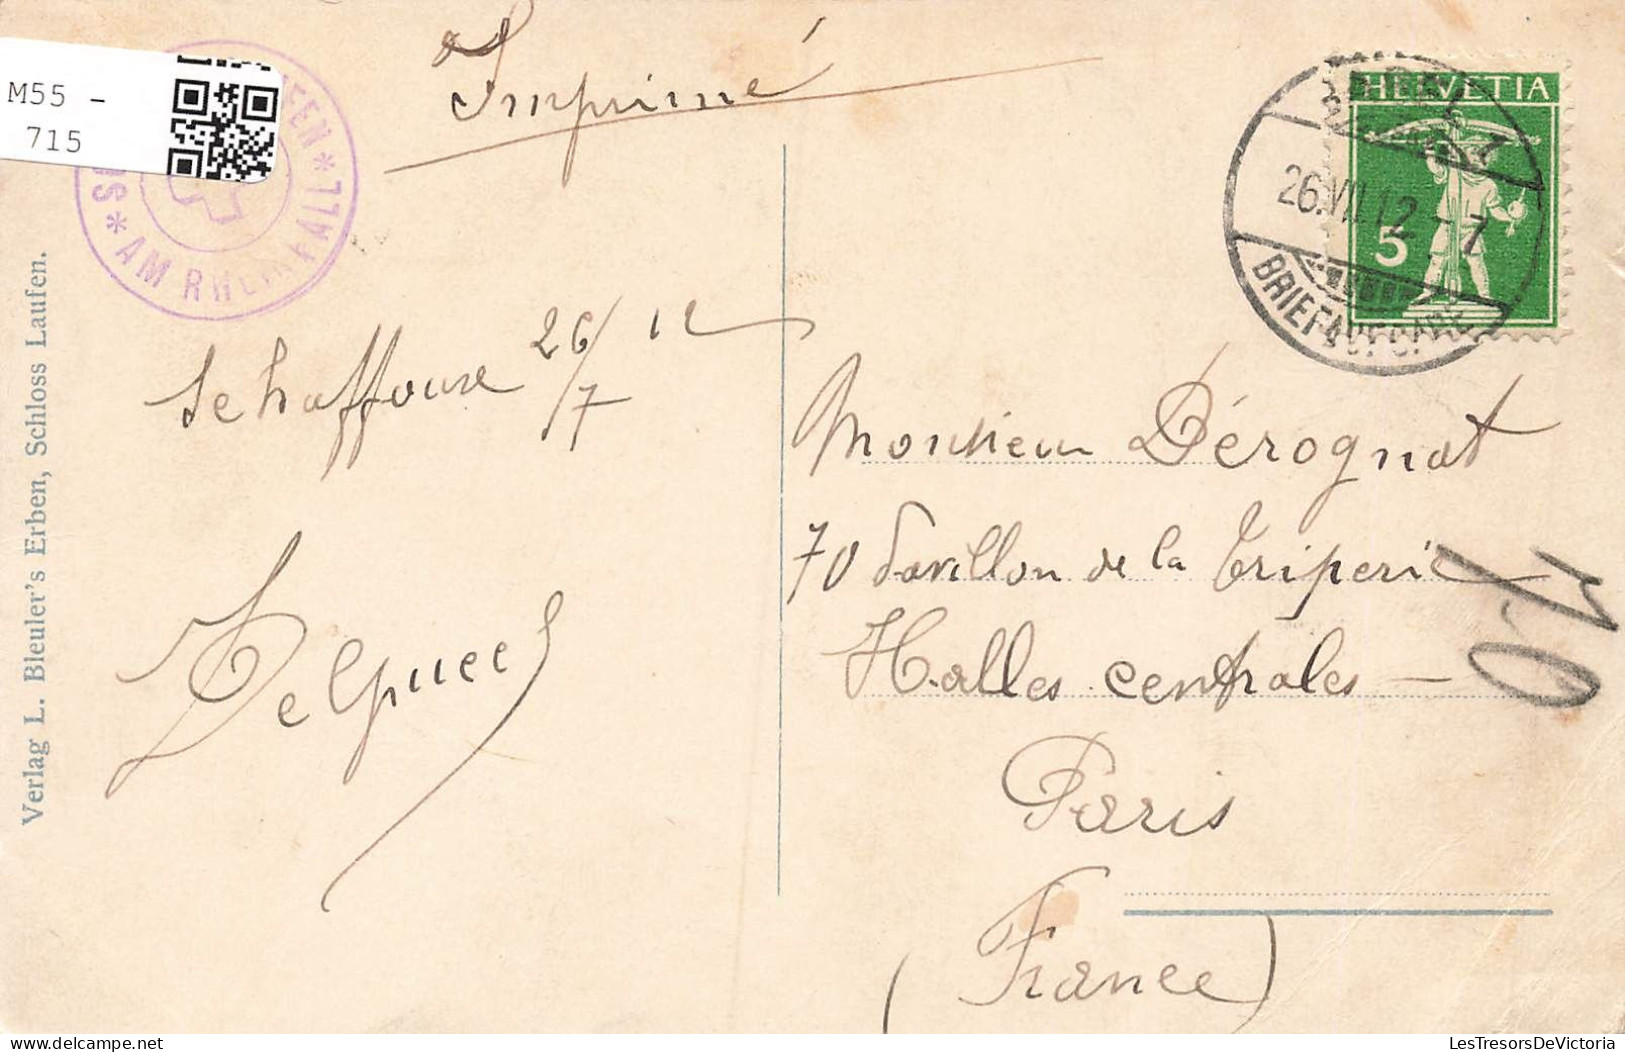 M55 -
715
Imprimé
FEN * AM RHEINFALL * S
HELVETIA
5
26.VII.12 - 7
BRIEFAUFGABE
Schaffouse 26/7 12
Monsieur Dérognat
70 Pavillon de la Triperie
Halles centrales -
Paris
(France)
10
Verlag L. Bleuler's Erben, Schloss Laufen.
delcampe.net
LesTresorsDeVictoria